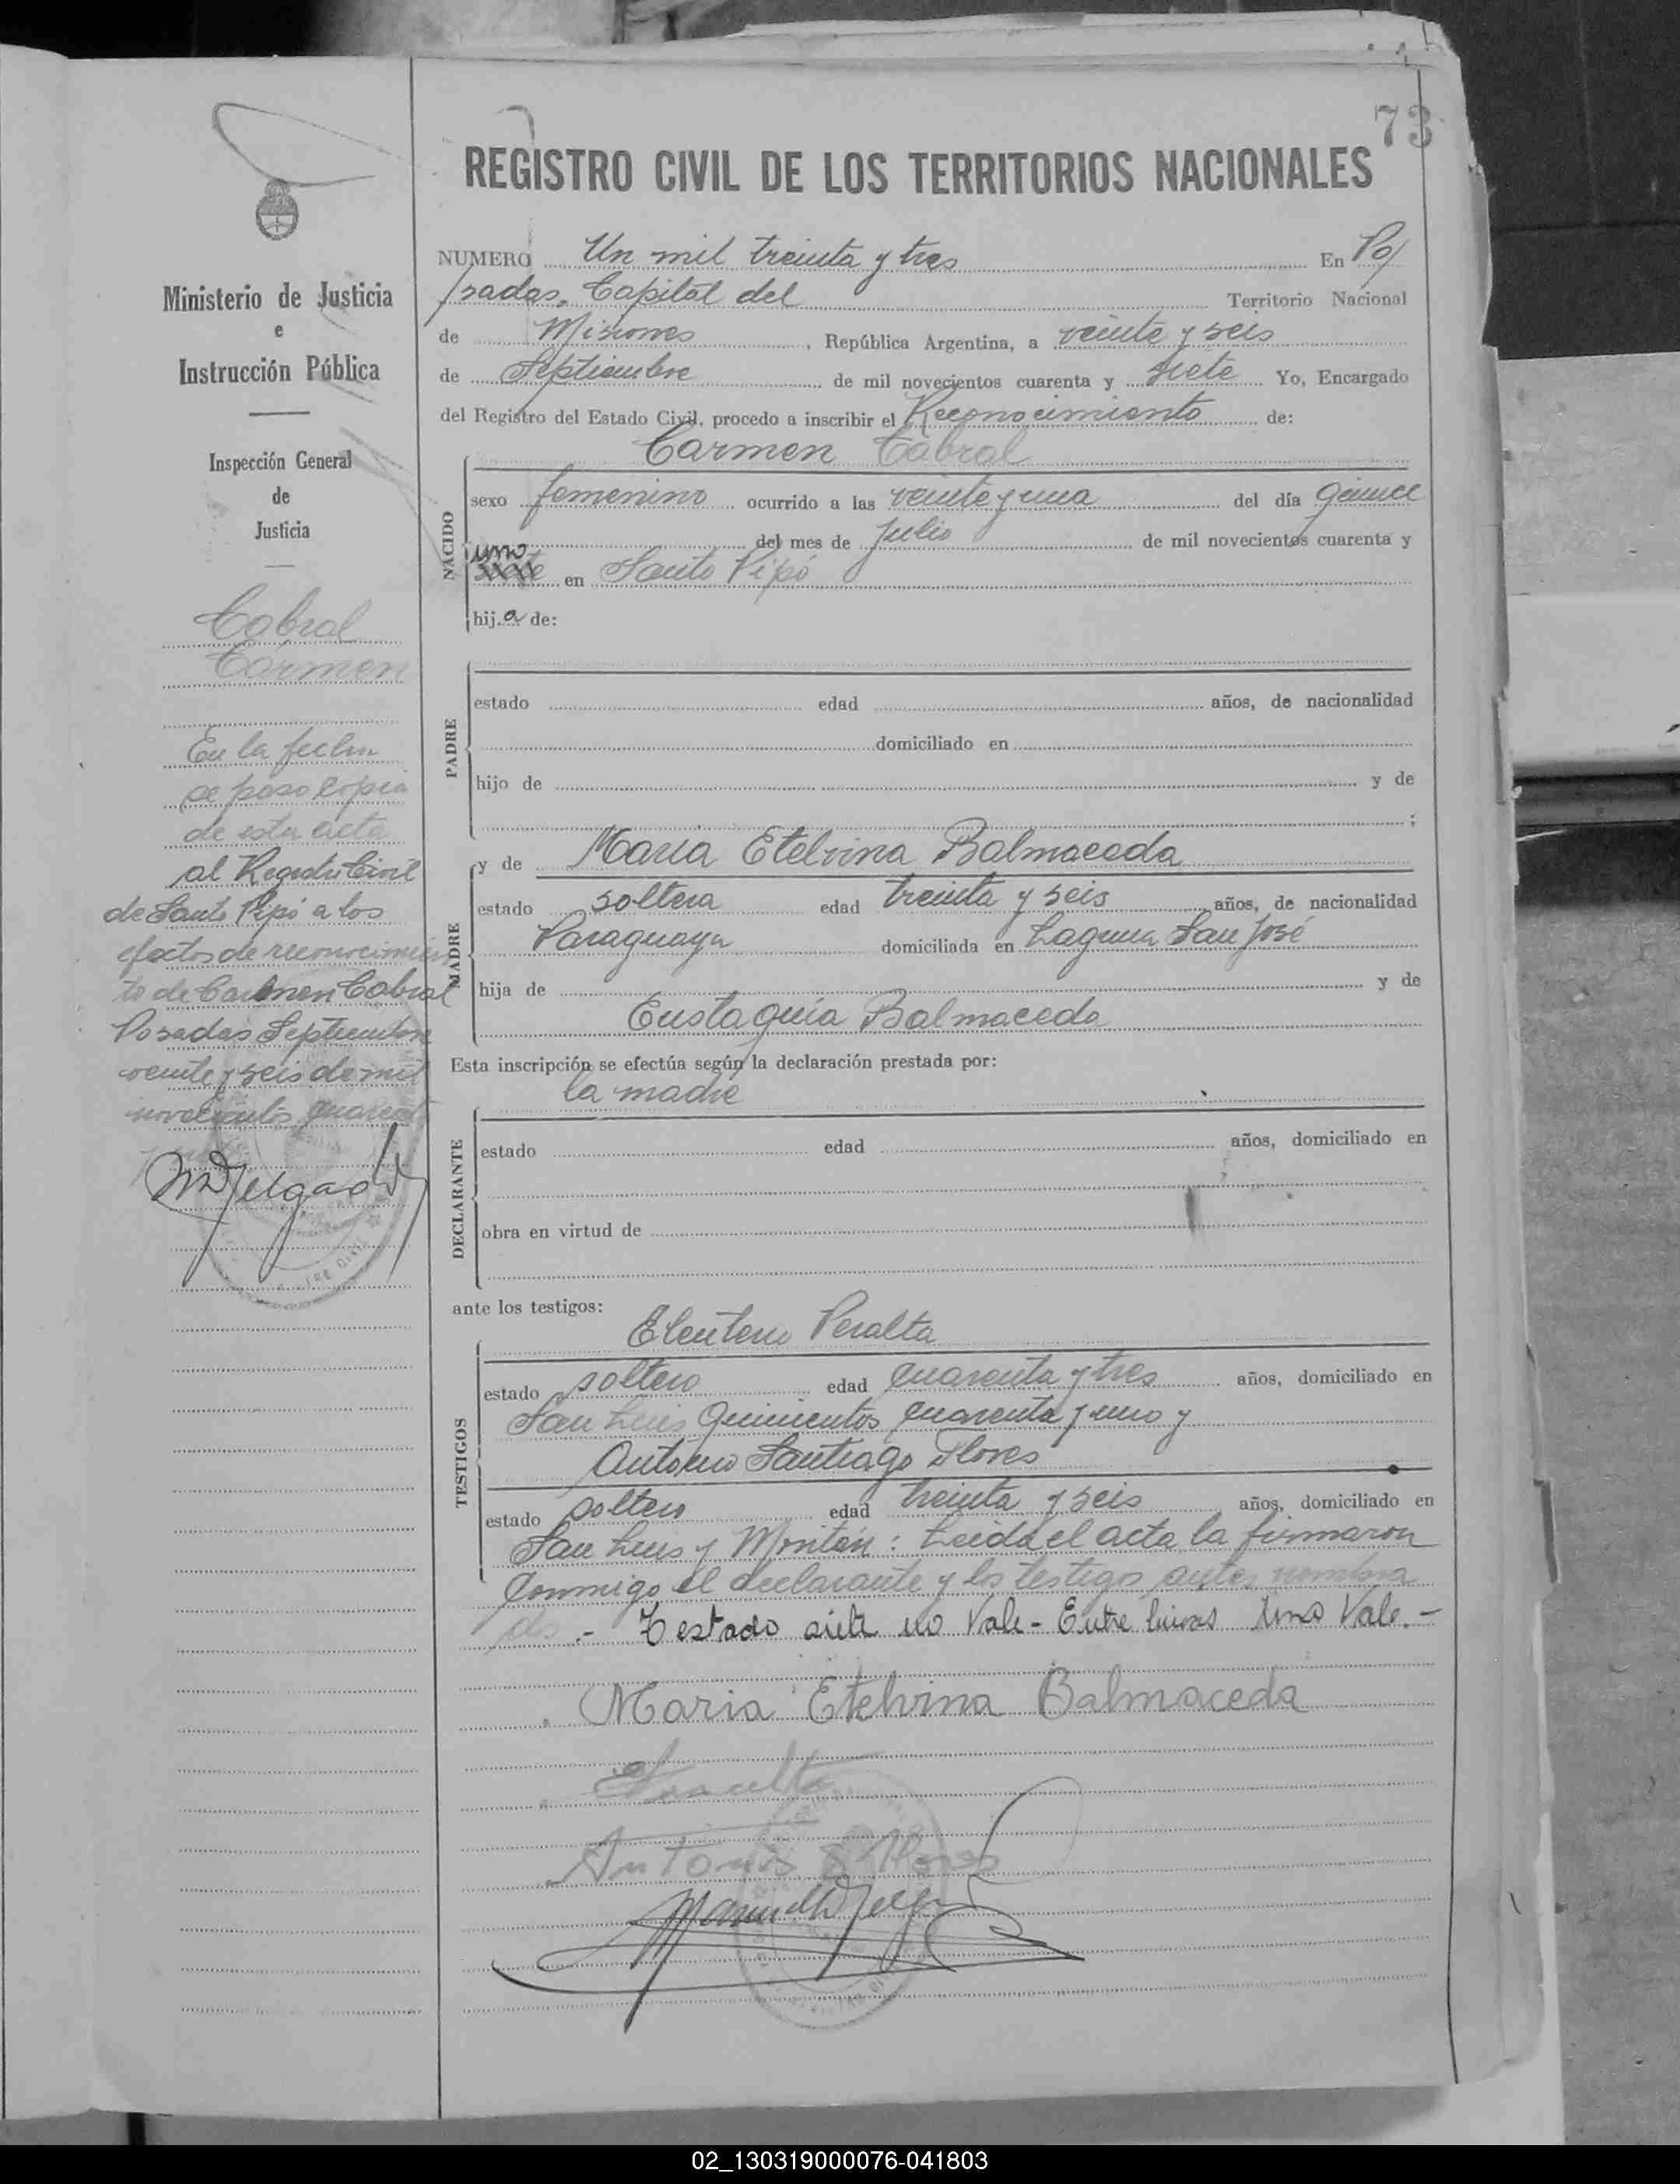 73
REGISTRO CIVIL DE LOS TERRITORIOS NACIONALES
Ministerio de Justicia
e
Instrucción Pública
Inspección General
de
Justicia
Cabral
Carmen
En la fecha
se paso copia
de esta acta
al Registro Civil
de Santo Pipó a los
efectos de reconocimien
to de Carmen Cabral
Posadas Septiembre
veinte y seis de mil
novecientos cuarenta
NUMERO Un mil treinta y tres En Po/
sadas, Capital del Territorio Nacional
de Misiones, República Argentina, a veinte y seis
de Septiembre de mil novecientos cuarenta y siete Yo, Encargado
del Registro del Estado Civil, procedo a inscribir el Reconocimiento de:
Carmen Cabral
NACIDO
sexo femenino ocurrido a las veinte y una del día quince
del mes de Julio de mil novecientos cuarenta y
uno
siete en Santo Pipó
hija de:
PADRE
estado edad años, de nacionalidad
domiciliado en
hijo de y de
;
MADRE
y de Maria Etelvina Balmaceda
estado soltera edad treinta y seis años, de nacionalidad
Paraguaya domiciliada en Laguna San José
hija de y de
Eustaquia Balmaceda
Esta inscripción se efectúa según la declaración prestada por:
la madre
DECLARANTE
estado edad años, domiciliado en
obra en virtud de
ante los testigos:
Eleuterio Peralta
TESTIGOS
estado soltero edad cuarenta y tres años, domiciliado en
San Luis quinientos cuarenta y uno y
Antonio Santiago Flores
estado soltero edad treinta y seis años, domiciliado en
San Luis y Moritán: Leida el acta la firmaron
conmigo el declarante y los testigos antes nombra
dos.- Testado siete no Vale - Entre lineas uno Vale.-
Maria Etelvina Balmaceda
Antonio S Flores
02_130319000076-041803